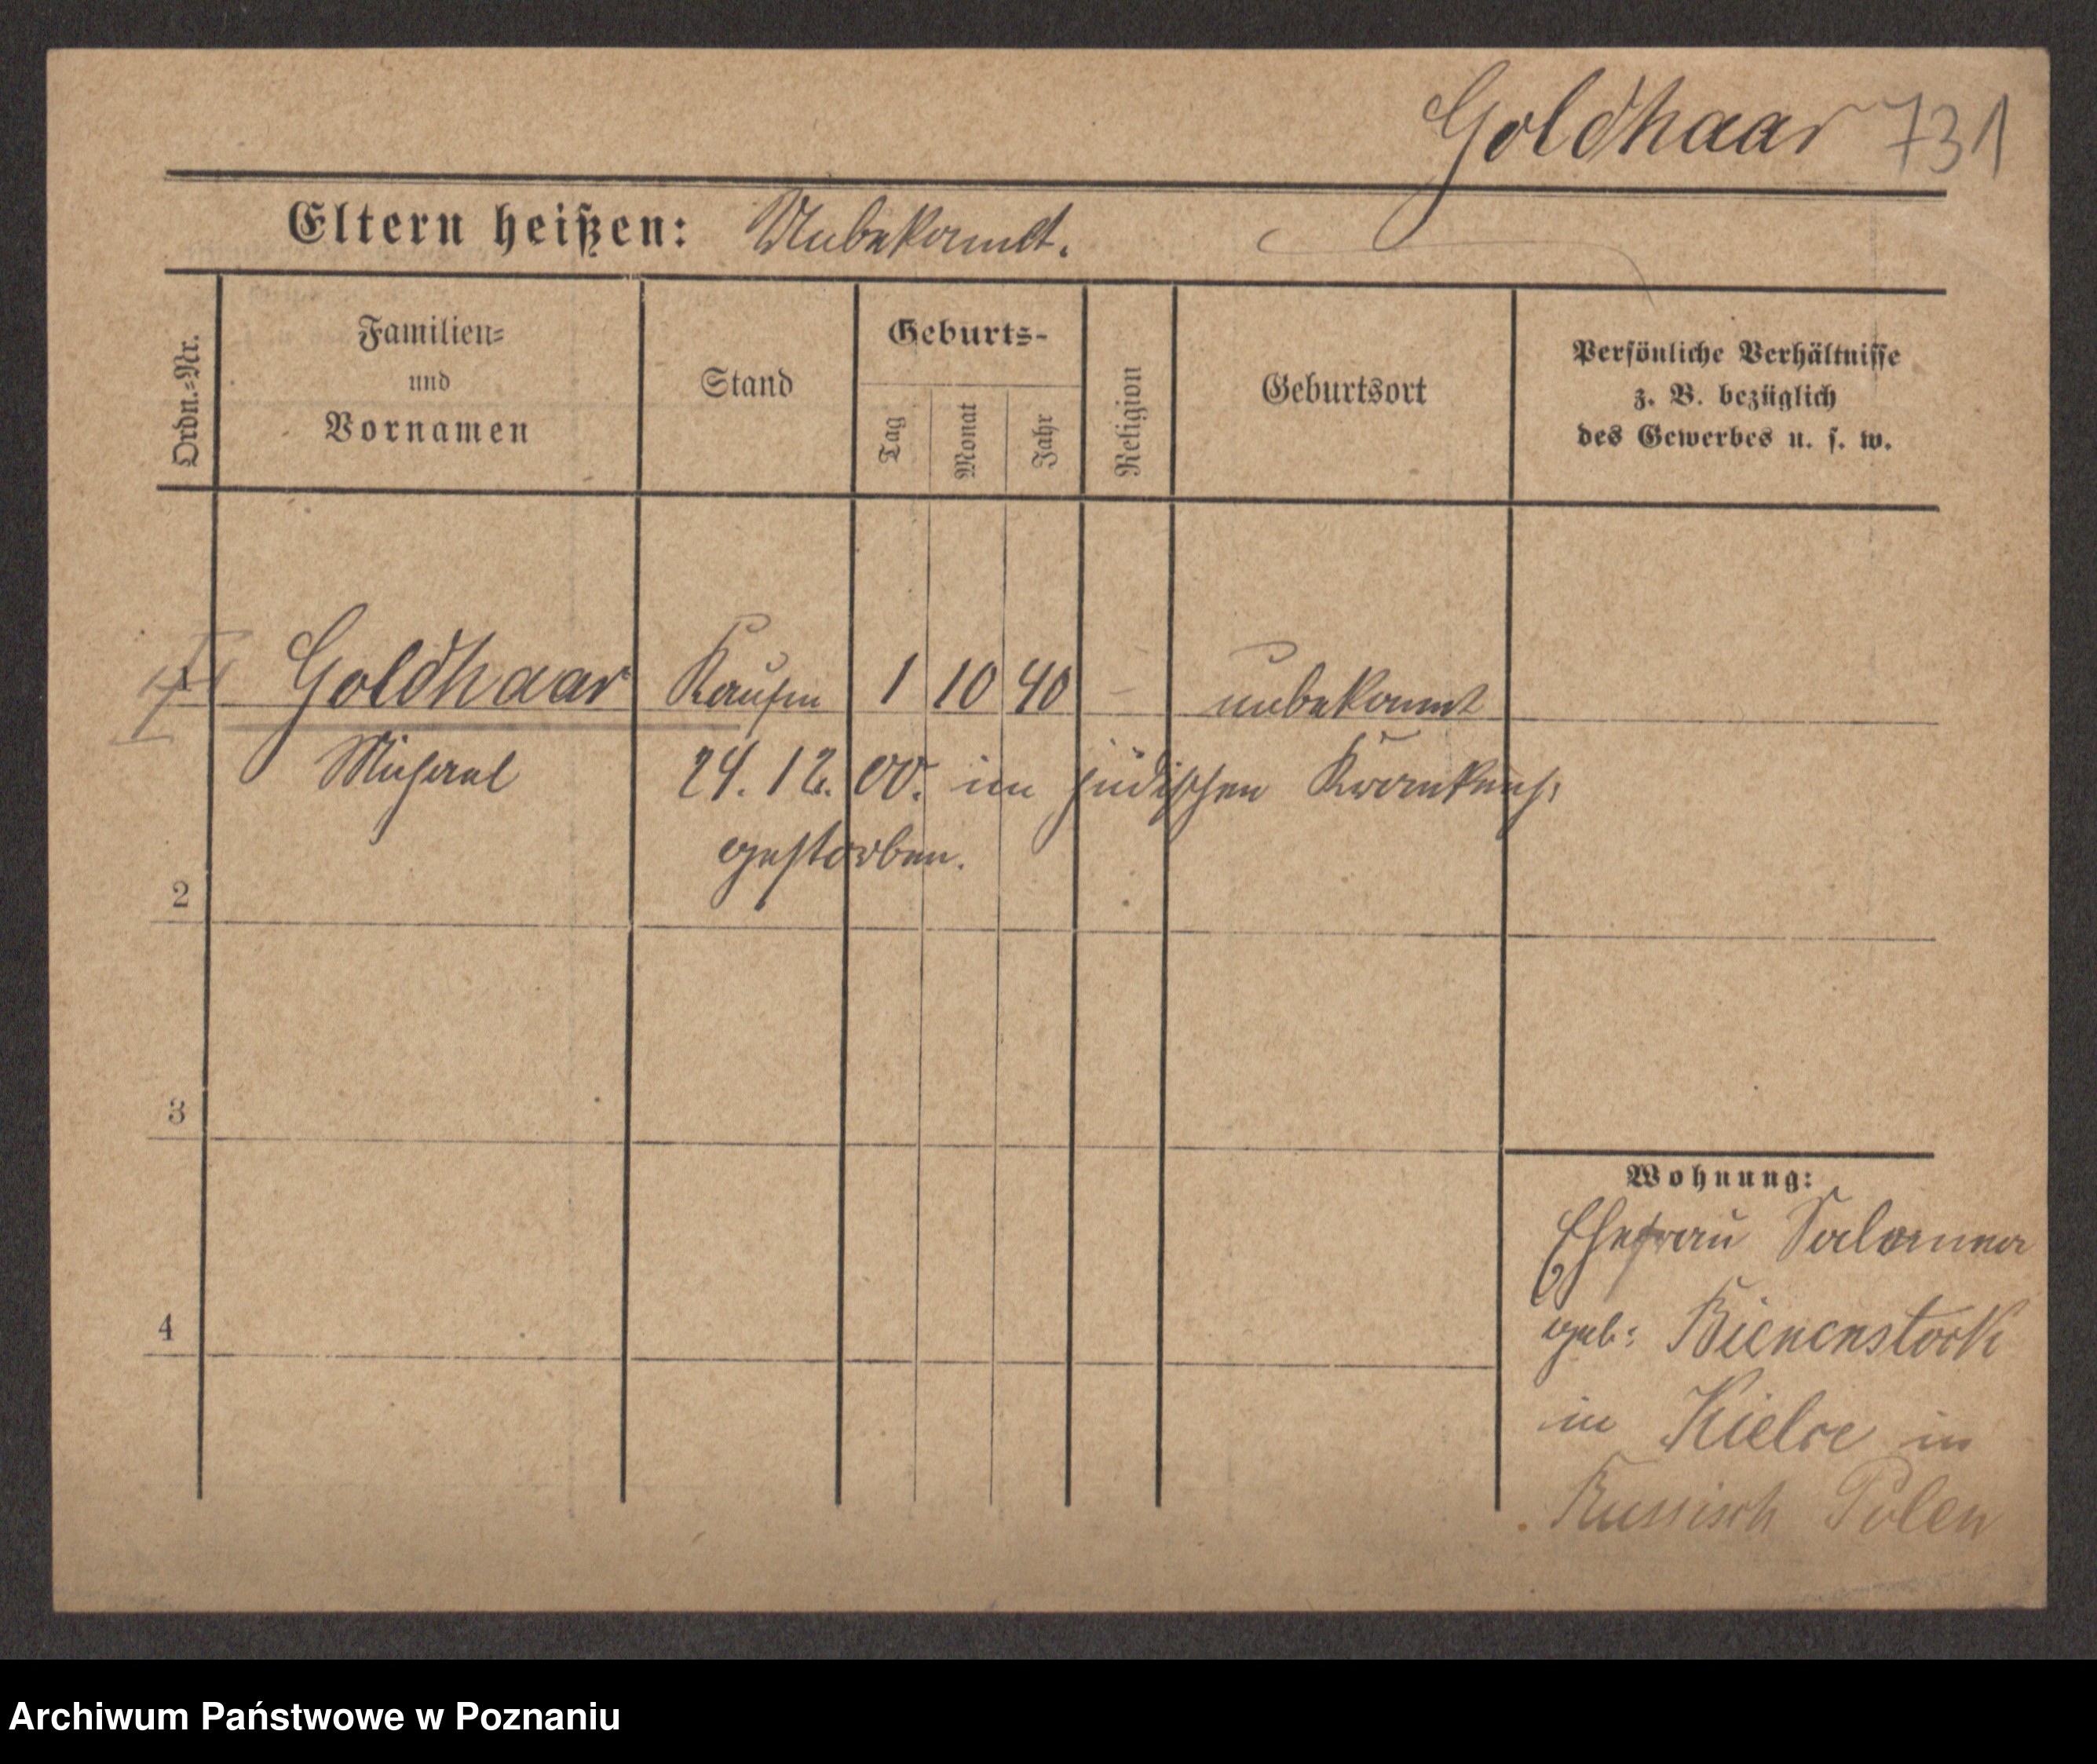 Goldhaar 731
Eltern heißen: Unbekannt.
Ordn.=Nr.
Familien=
und
Vornamen
Stand
Geburts-
Tag
Monat
Jahr
Religion
Geburtsort
Persönliche Verhältnisse
z. B. bezüglich
des Gewerbes u. s. w.
1 Goldhaar Kaufm 1 10 40 - unbekannt
Michael 24. 12. 00. im jüdischen Krankenh:
gestorben.
2
3
4
Wohnung:
Ehefrau Salomea
geb: Bienenstock
in Kielce in
Russisch Polen
Archiwum Państwowe w Poznaniu